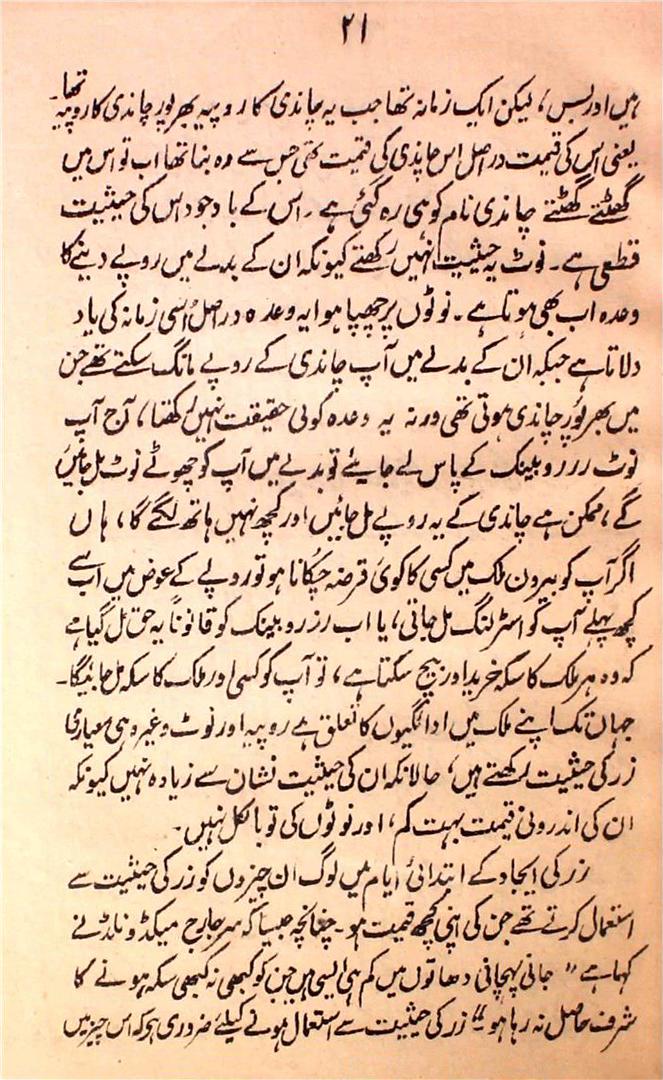 ۲۱
ہیں اور بس، لیکن ایک زمانہ تھا جب یہ چاندی کا روپیہ بھرپور چاندی کا روپیہ تھا۔
یعنی اس کی قیمت دراصل اس چاندی کی قیمت تھی جس سے وہ بنا تھا اب تو اس میں
گھٹتے گھٹتے چاندی نام کو ہی رہ گئی ہے۔ اس کے باوجود اس کی حیثیت
قطعی ہے۔ نوٹ یہ حیثیت نہیں رکھتے کیونکہ ان کے بدلے میں روپے دینے کا
وعدہ اب بھی ہوتا ہے۔ نوٹوں پر چھپا ہوا یہ وعدہ دراصل اُسی زمانہ کی یاد
دلاتا ہے جبکہ ان کے بدلے میں آپ چاندی کے روپے مانگ سکتے تھے جن
میں بھرپُور چاندی ہوتی تھی ورنہ یہ وعدہ کوئی حقیقت نہیں رکھتا، آج آپ
نوٹ رزرو بینک کے پاس لے جایئے تو بدلے میں آپ کو چھوٹے نوٹ مل جائیں
گے، ممکن ہے چاندی کے یہ روپے مل جائیں اور کچھ نہیں ہاتھ لگے گا، ہاں
اگر آپ کو بیرون ملک میں کسی کا کوئی قرضہ چکانا ہو تو روپے کے عوض میں اب سے
کچھ پہلے آپ کو اسٹرلنگ مل جاتی، یا اب رزرو بینک کو قانوناً یہ حق مل گیا ہے
کہ وہ ہر ملک کا سکہ خرید اور بیچ سکتا ہے، تو آپ کو کسی اور ملک کا سکہ مل جائیگا۔
جہاں تک اپنے ملک میں ادائگیوں کا تعلق ہے روپیہ اور نوٹ وغیرہ ہی معیاری
زر کی حیثیت رکھتے ہیں، حالانکہ ان کی حیثیت نشان سے زیادہ نہیں کیونکہ
ان کی اندرونی قیمت بہت کم، اور نوٹوں کی تو بالکل نہیں۔
زر کی ایجاد کے ابتدائی ایام میں لوگ ان چیزوں کو زر کی حیثیت سے
استعمال کرتے تھے جن کی اپنی کچھ قیمت ہو۔ چنانچہ جیسا کہ سر جارج میکڈونلڈ نے
کہا ہے "جانی پہچانی دھاتوں میں کم ہی ایسی ہیں جن کو کبھی نہ کبھی سکہ ہونے کا
شرف حاصل نہ رہا ہو" زر کی حیثیت سے استعمال ہونے کیلئے ضروری ہو کہ اس چیز میں